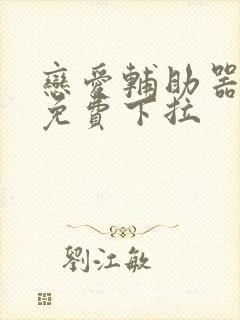 戀愛輔助器
免費下拉
劉江敏